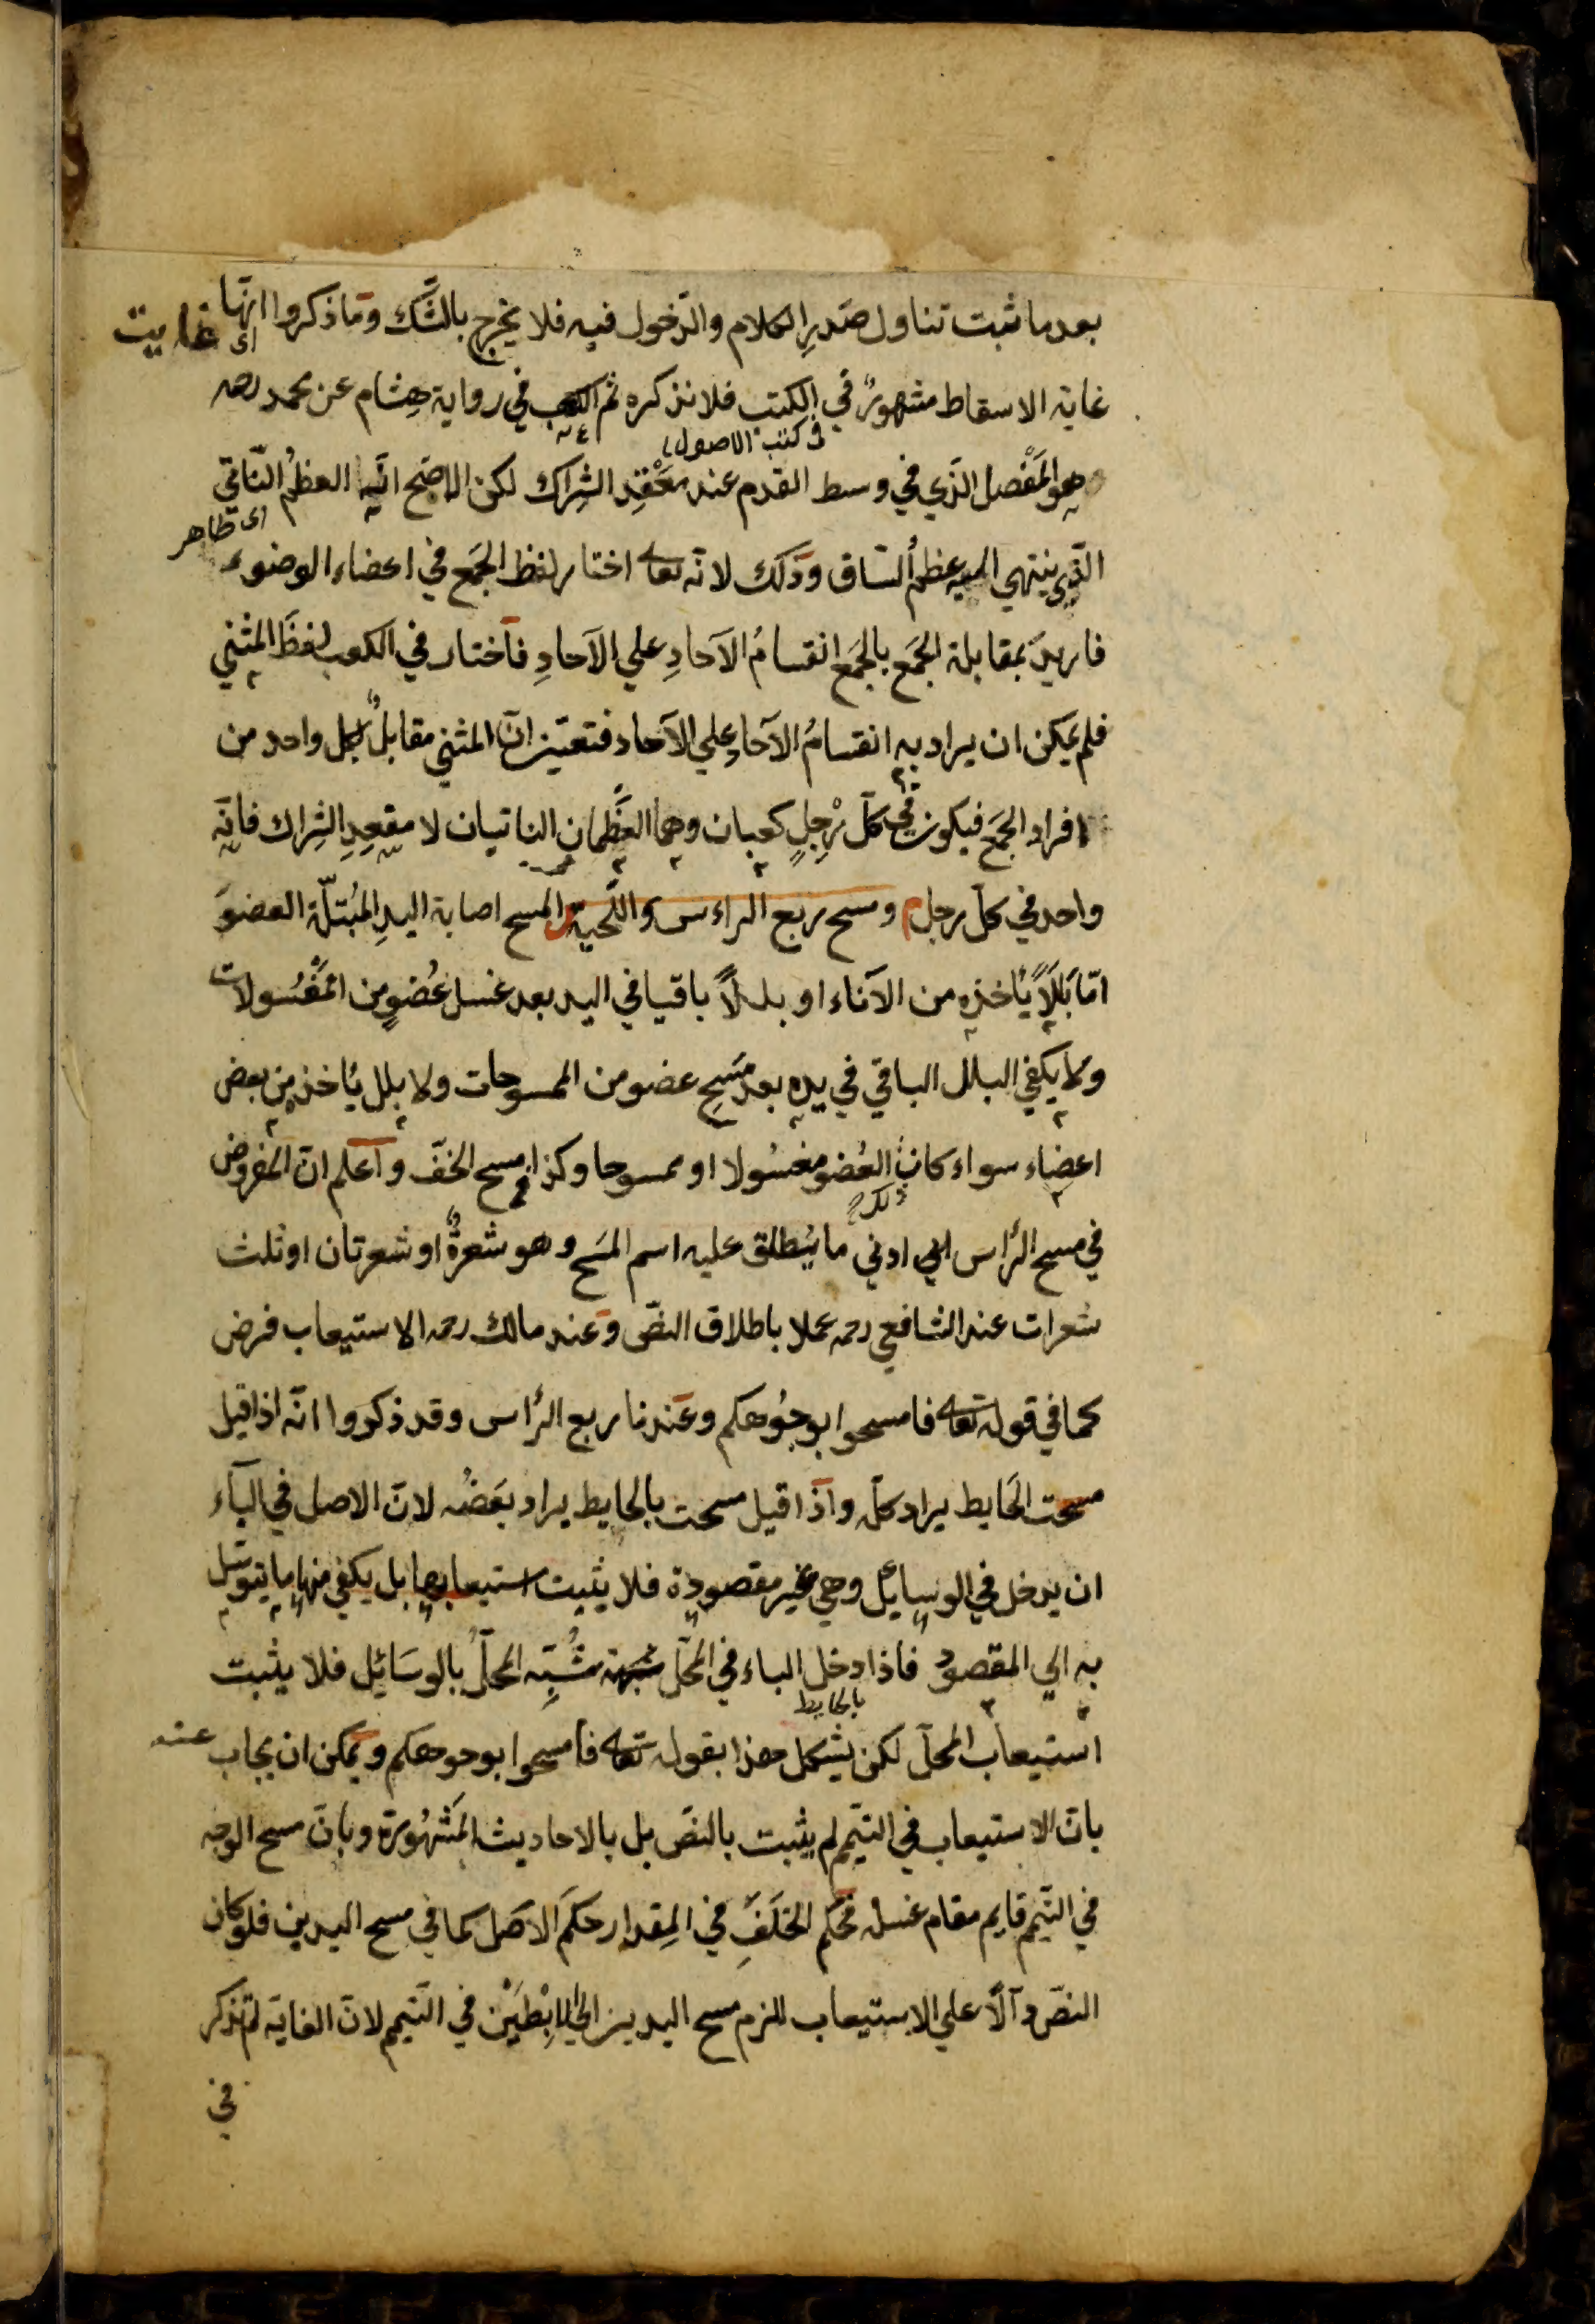 بعد ما ثبت تناول صَدرِ الكلام والدّخول فيه فلا يخرج بالشَّك ومَا ذكروا انّها
اى غايت
غاية الاسقاط مشهورٌ في الكتب فلا نذكره ثم الكعب في رواية هِشام عن محمد رحمه
فى كتب الاصول
هو المَفْصل الذّي في وسط القدم عند مَعْقِدِ الشِراك لكن الاصَح انّه العظمُ النّاتي
اى ظاهر
الذّي ينتهي اليه عظمُ السّاق وذلك لانّه تعالى اختار لفظ الجَمع في اعضاء الوضوء
فاريدَ بمقابلة الجَمع بالجَمع انقسامُ الآحادِ علي الآحادِ فاختار في الكعب لفظَ المثني
فلم يمَكن ان يراد به انقسامُ الآحادِ علي الآحاد فتعيّن انّ المثني مقابلٌ لكل واحد من
افراد الجَمع فيكون في كلّ رِجلٍ كعبان وهما العَظَمانِ الناتيان لا مقعِدِ الشِراك فانّه
واحد في كلّ رجل ومسح ربع الراءس واللَّحية المسح اصابة اليدِ المُبتلّة العضوَ
امّا بَلَلًا يَأخذه من الآناء او بللاً باقيا في اليد بعد غسل عُضوٍ من المَغْسُولات
ولا يكفي البلل الباقي في يده بعد مَسَحِ عضو من الممسوحات ولا بلل يُاخذ من بعض
اعضاء سواء كان العُضو مغسُولا او ممسوحا وكذا مسح الخفّ واعلم انّ المفروض
في مسح الرأس ادني ما يُطلق عليه اسم المسَح وهو شعرةٌ او شعرتان او ثلث
شعرات عند الشافعي رحمه عملا باطلاق النصّ وعند مالك رحمه الاستيعاب فرض
كما في قوله تعالى فامسحوا بوجُوهكم وعَندنا ربع الرأس وقد ذكروا انّه اذا قيل
مسحت الحَايط يراد كلّه واذا قيل مسحت بالحايط يراد بعَضُه لانّ الاصل في البآء
ان يدخل في الوسايُل وهي غير مقصودة فلا يثبت استيعابها بل يكفي منها ما يتوسّل
به الي المقصود فاذا دخل الباء في المحَلّ شُبِّه المحلُّ بالوسَائِل فلا يثبت
بالحايط
استيعاب المحلّ لكن يشكل هذا بقوله تعالى فامسحوا بوجوهكم ويمَكن ان يجاب عنه
بانّ الاستيعاب في التيّمم لم يثبت بالنصّ بل بالاحاديث المَشهُورَة وبانّ مسح الوجه
في التيّمم قايم مقام غسله فحَكم الخلَفِ في المِقدار حكم الاصَل كما في مسح اليدين فلو كان
النصّ دآلًّا علي الاستيعاب للزم مسح اليدين الي الاِبْطَيْن في التيّمم لانّ الغاية لم تذكر
في